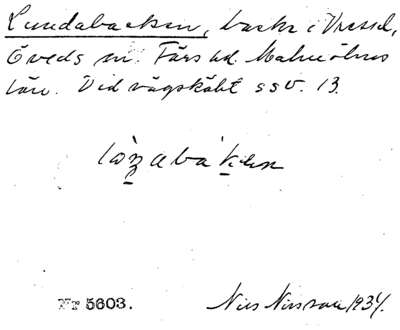 Lundabacken, backe i Vressel,
Öveds sn. Färs hd. Malmöhus
län. Vid vägskält ssv. 13.
Nr 5603. Nils Nilsson 1934.